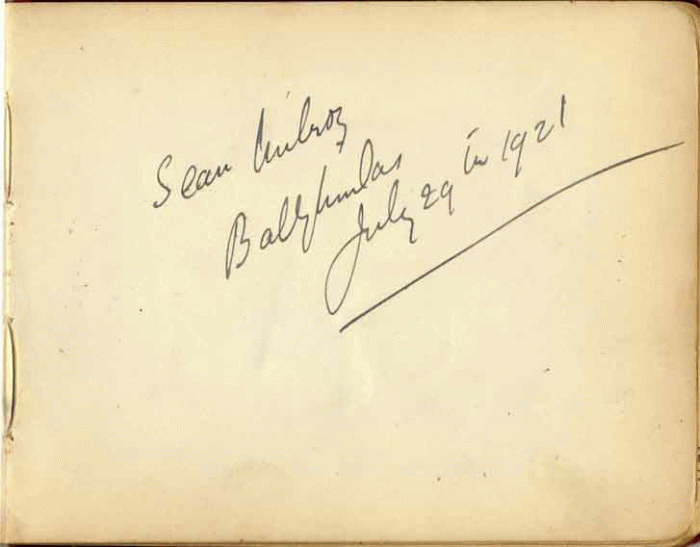 Sean Milroy
Ballykinlar
July 29th 1921